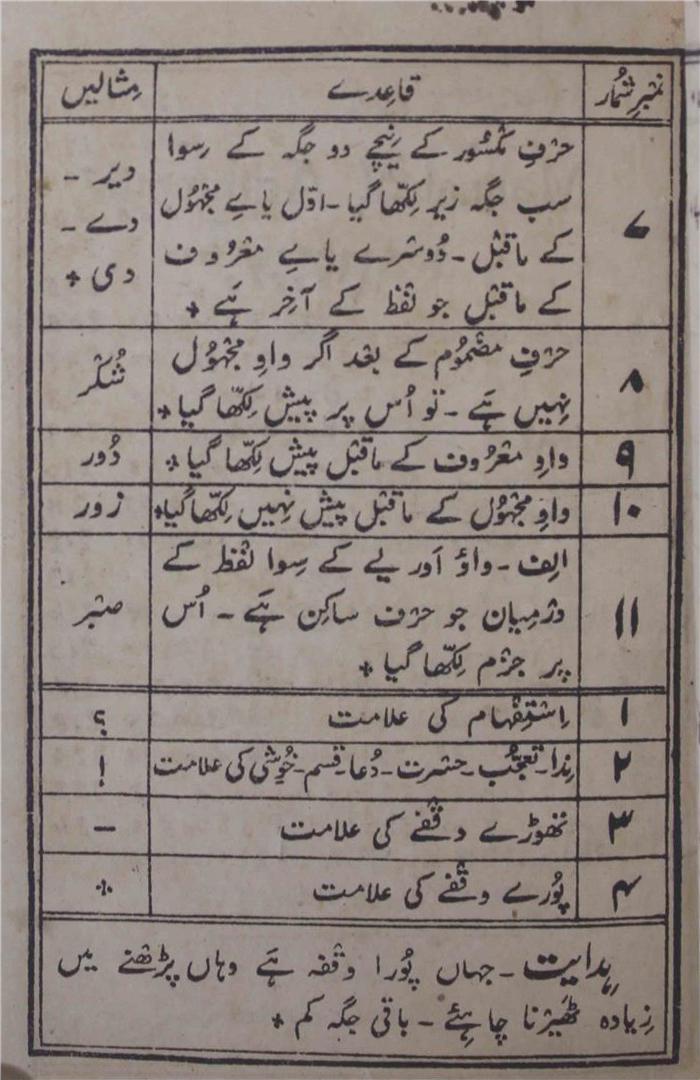 نمبر شُمار قاعِدے مِثالیں
۷ حرْفِ مکْسُور کے نِیچے دو جگہ کے سِوا دیر -
سب جگہ زیر لِکّھا گیا - اوّل یاے مجْہُول دے -
کے ماقبْل - دُوسْرے یاے معْرُوف دی +
کے ماقبْل جو لفْظ کے آخِر ہَے +
۸ حرْفِ مضْمُوم کے بعْد اگر واوِ مجْہُول شُکْر
نہِیں ہَے - تو اُس پر پیش لِکّھا گیا +
۹ واوِ معْرُوف کے ماقبْل پیش لِکّھا گیا + دُور
۱۰ واوِ مجْہُول کے ماقبْل پیش نہِیں لِکّھا گیا + زور
۱۱ الِف - واؤ اَور یے کے سِوا لفْظ کے صبْر
درْمِیان جو حرْف ساکِن ہَے - اُس
پر جزْم لِکّھا گیا +
۱ اِسْتِفْہام کی علامت ؟
۲ نِدا - تعجُّب - حسْرت - دُعا - قسم - خُوشی کی علامت !
۳ تھوڑے وقْفے کی علامت -
۴ پُورے وقْفے کی علامت +
ہِدایت - جہاں پُورا وقْفہ ہَے وہاں پڑھْنے میں
زِیادہ ٹھَیرْنا چاہِئے - باقی جگہ کم +